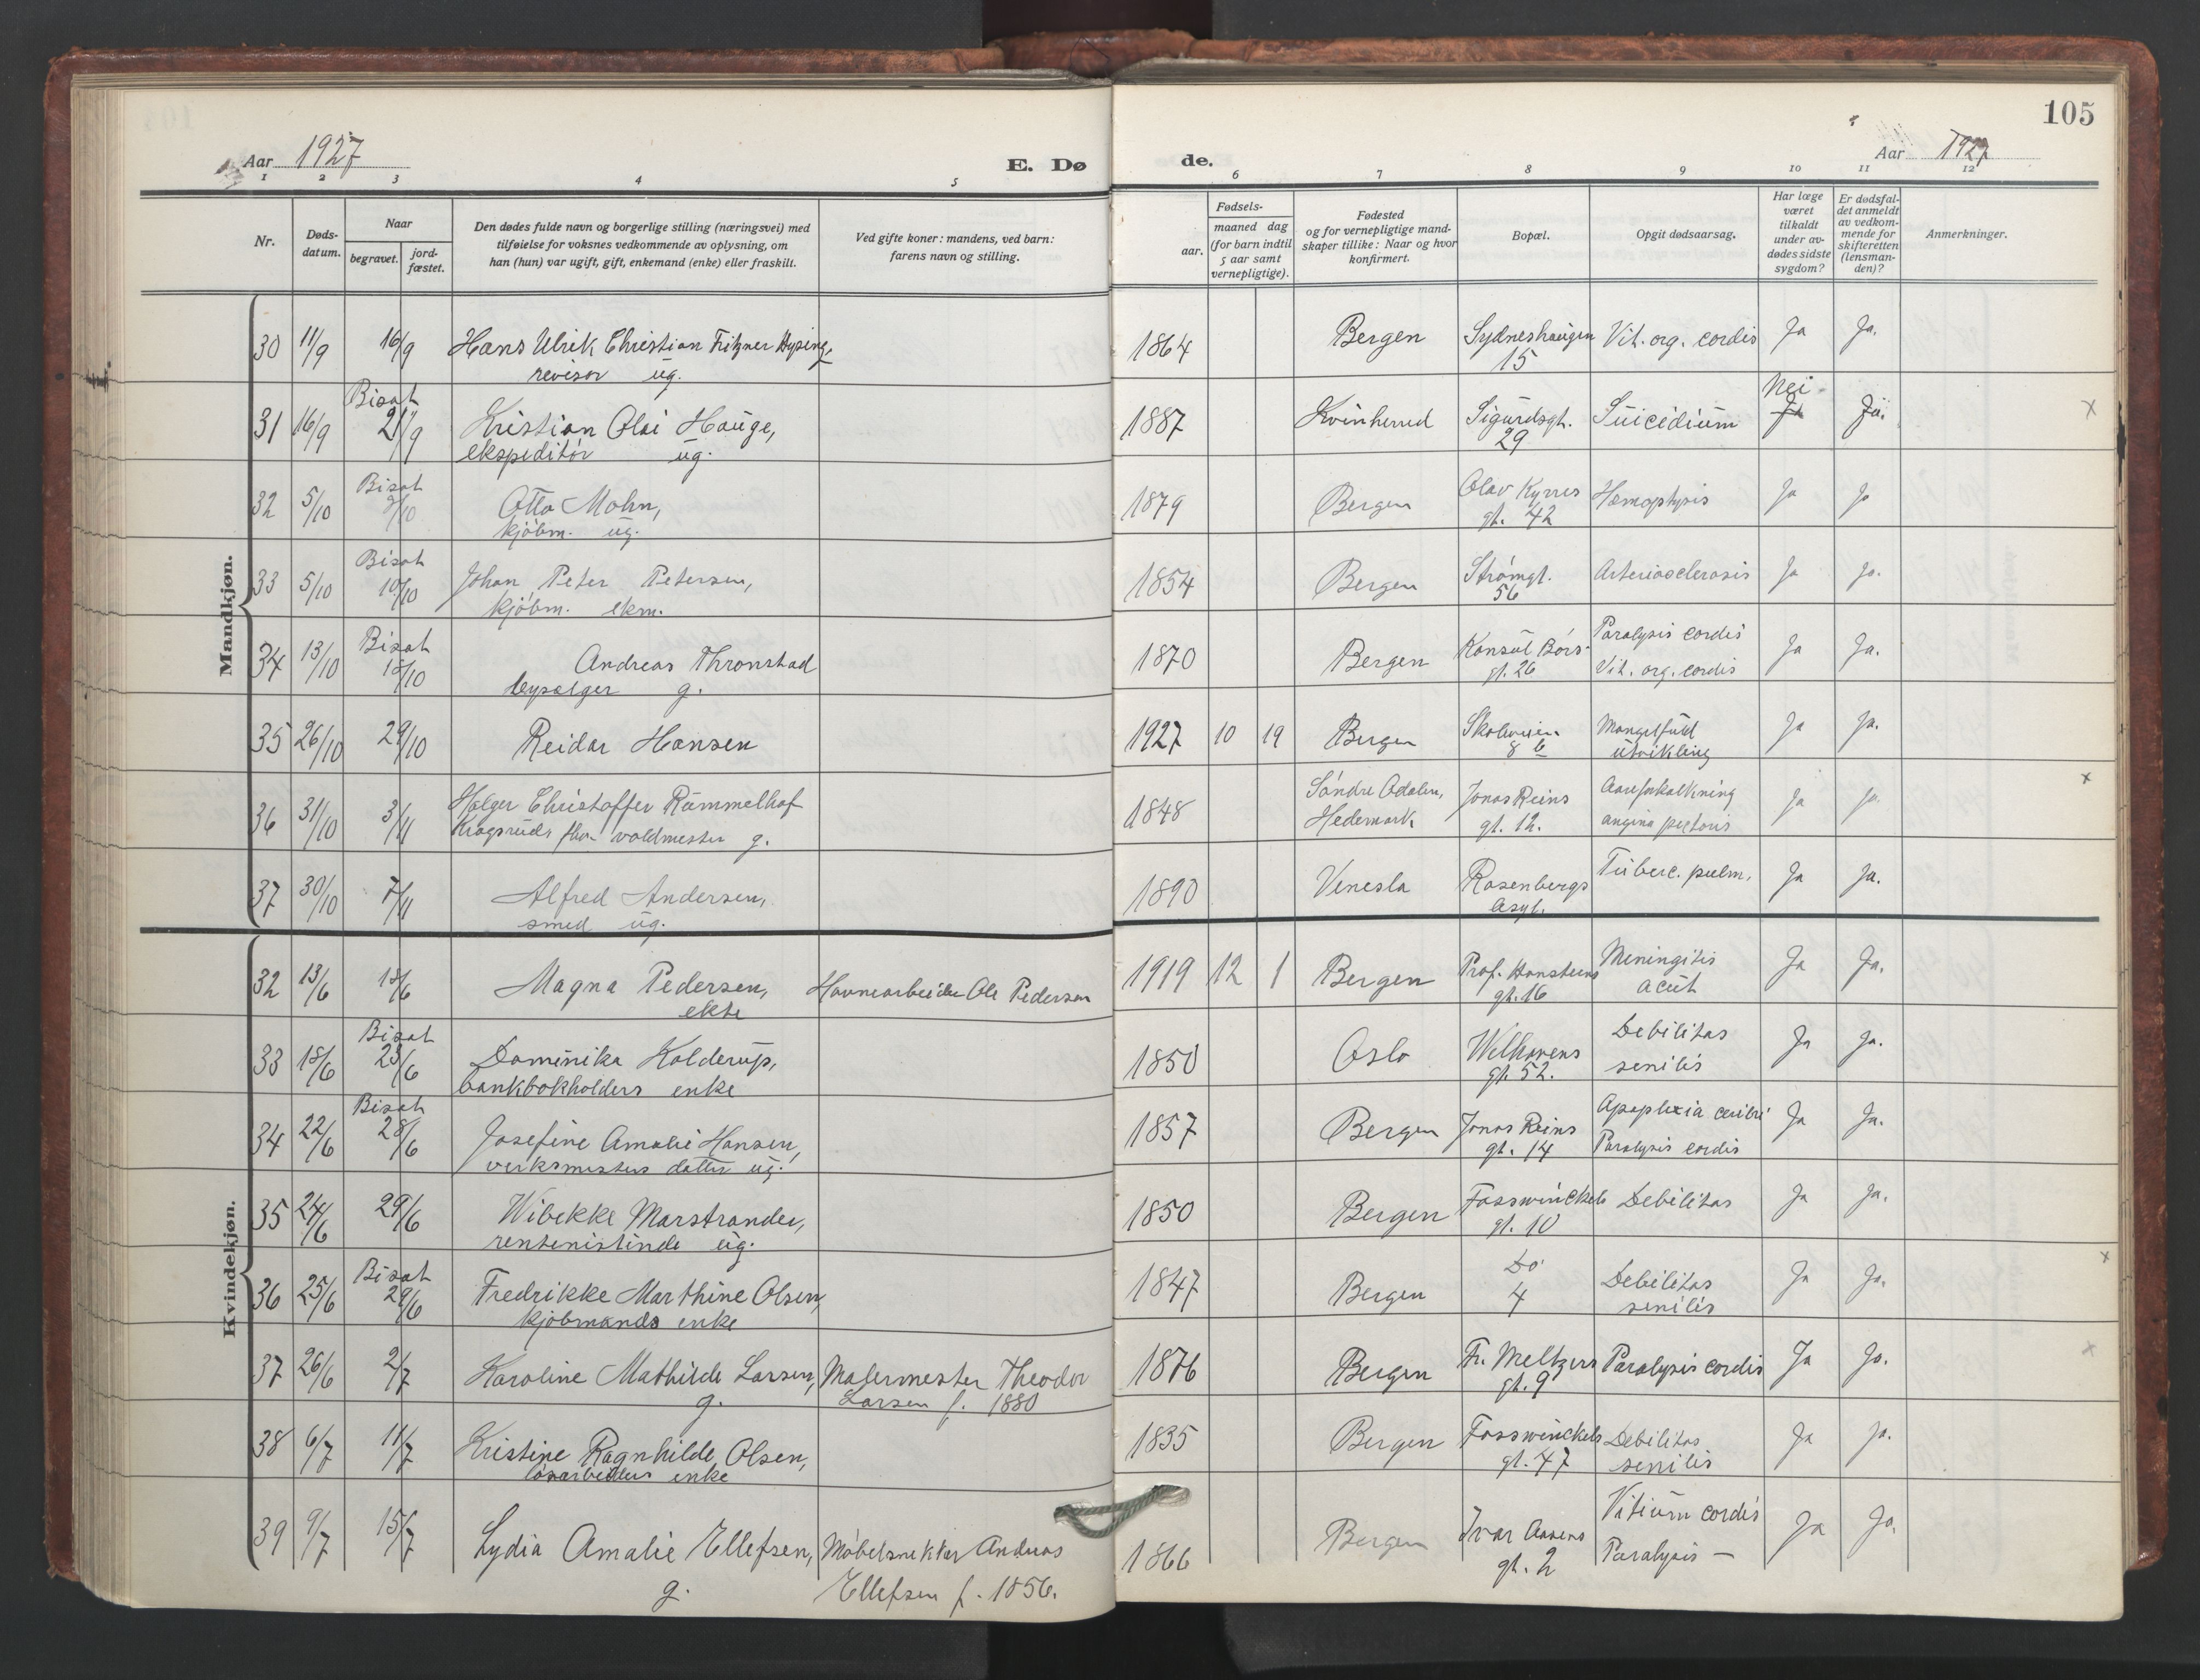 105
Aar 1927
E. Dø
de.
Aar 1927
1 2 3 4 5 6 7 8 9 10 11 12
Nr.
Døds-
datum.
Naar
begravet.
jord-
fæstet.
Den dødes fulde navn og borgerlige stilling (næringsvei) med
tilføielse for voksnes vedkommende av oplysning, om
han (hun) var ugift, gift, enkemand (enke) eller fraskilt.
Ved gifte koner: mandens, ved barn:
farens navn og stilling.
Fødsels-
aar.
maaned dag
(for barn indtil
5 aar samt
vernepligtige).
Fødested
og for vernepligtige mand-
skaper tillike: Naar og hvor
konfirmert.
Bopæl.
Opgit dødsaarsag.
Har læge
været
tilkaldt
under av-
dødes sidste
sygdom?
Er dødsfal-
det anmeldt
av vedkom-
mende for
skifteretten
(lensman-
den)?
Anmerkninger.
Mandkjøn.
30 11/9 16/9 Hans Ulrik Christian Fritzner Hysing, 1864 Bergen Sydneshaugen Vit. org. cordis Ja Ja.
revisor ug. 15
Bisat Nei
31 16/9 21/9 Kristian Olai Hauge, 1887 Kvinherred Sigurdsgt. Suicidium Ja Ja. x
ekspeditör ug. 29
Bisat
32 5/10 9/10 Otto Mohn, 1879 Bergen Olav Kyrres Hæmoptysis Ja Ja
kjöbm. ug. gt. 42
Bisat
33 5/10 10/10 Johan Peter Petersen, 1854 Bergen Strömgt. Arteriosclerosis Ja Ja.
kjöbm. ekm. 56
Bisat Paralysis cordis
34 13/10 18/10 Andreas Thronstad 1870 Bergen Konsul Börs- Ja Ja.
bysælger g. gt. 26 Vit. org. cordis
35 26/10 29/10 Reidar Hansen 1927 10 19 Bergen Skoleveien Mangelfuld Ja Ja.
8 b utvikling
36 31/10 3/11 Holger Christoffer Rummelhof 1848 Söndre Odalen, Jonas Reins Aareforkalkning Ja Ja. x
Kragsrud, voldmester g. Hedemark gt. 12. angina pectoris
37 30/10 7/11 Alfred Andersen, 1890 Venesla Rosenbergs Tuberc. pulm. Ja Ja.
smed ug. Asyl.
Kvindekjøn.
32 13/6 18/6 Magna Pedersen, Havnearbeider Ole Pedersen 1919 12 1 Bergen Prof. Hansteens Meningitis Ja Ja.
ekte gt. 16 acut
Bisat
33 18/6 23/6 Dominika Kolderup, 1850 Oslo Welhavens Debilitas Ja Ja.
bankbokholders enke gt. 52. senilis
Bisat
34 22/6 28/6 Josefine Amalie Hansen, 1857 Bergen Jonas Reins Apoplexia cerebri Ja Ja.
verksmesters datter ug. gt. 14 Paralysis cordis
35 24/6 29/6 Wibekke Marstrander, 1850 Bergen Fosswinckels Debilitas Ja Ja.
rentenistinde ug. gt. 10
Bisat Do
36 25/6 29/6 Fredrikke Marthine Olsen, 1847 Bergen 4 Debilitas Ja Ja. x
kjöbmands enke senilis
37 26/6 2/7 Karoline Mathilde Larsen, Malermester Theodor 1876 Bergen Fr. Meltzers Paralysis cordis Ja Ja. x
g. Larsen f. 1880 gt. 9
38 6/7 11/7 Kristine Ragnhilde Olsen, 1835 Bergen Fosswinckels Debilitas Ja Ja.
lösarbeiders enke gt. 47 senilis
39 9/7 15/7 Lydia Amalie Ellefsen, Möbelsnekker Andreas 1866 Bergen Ivar Aasens Vitium cordis Ja Ja.
g. Ellefsen f. 1856. gt. 2 Paralysis —